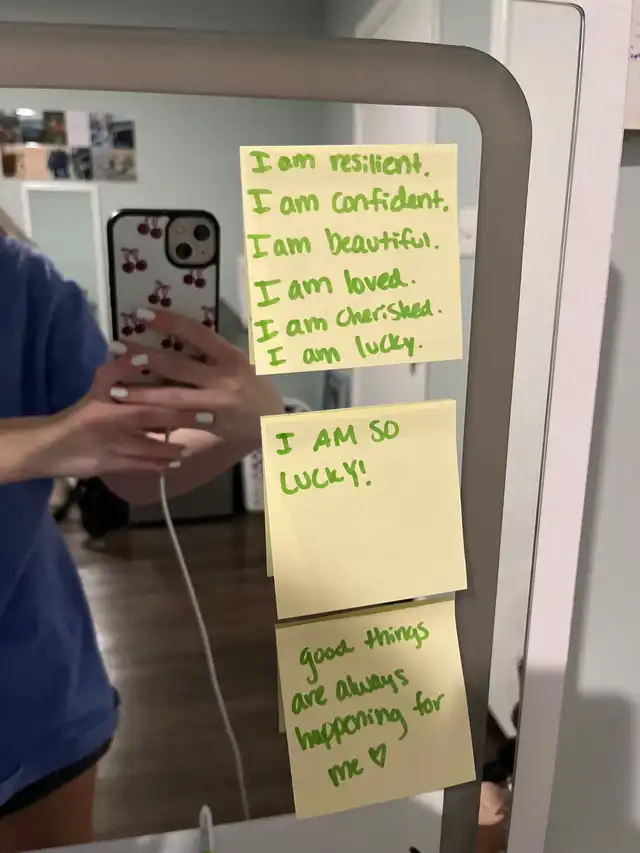 I am resilient.
I am confident.
I am beautiful.
I am loved.
I am cherished.
I am lucky.
I AM SO
LUCKY!
good things
are always
happening for
me ♡